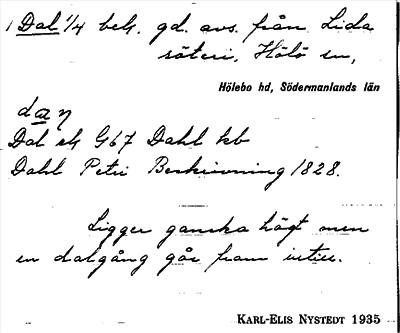 1 Dal 1/4 beh. gd. avs. från Lida
säteri, Hölö sn,
Hölebo hd, Södermanlands län
dan
Dal ek G67 Dahl kb
Dahl Petri Beskrivning 1828.
Ligger ganska högt men
en dalgång går fram intill.
KARL-ELIS NYSTEDT 1935